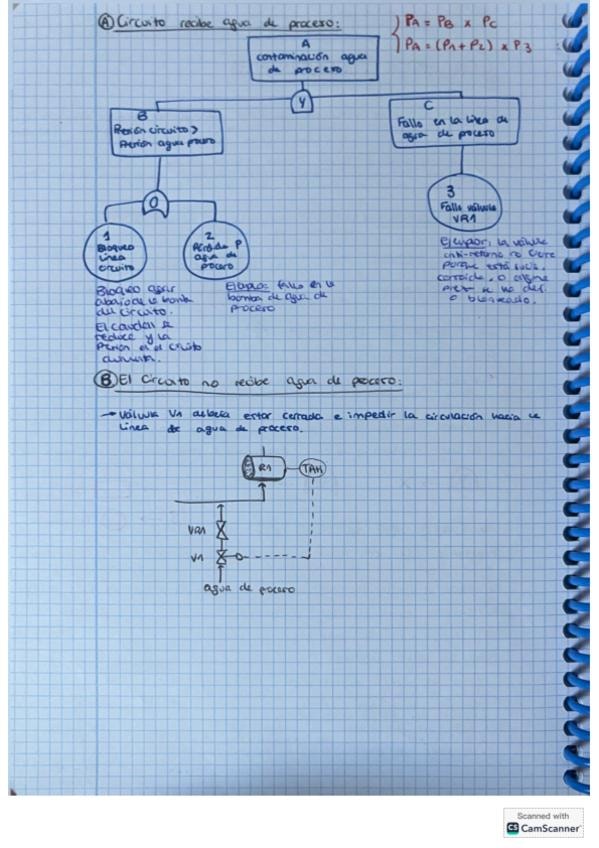 A Circuito recibe agua de proceso:
PA = PB x PC
PA = (P1 + P2) x P3
A
contaminación agua
de proceso
Y
B
Presión circuito >
Presión agua proceso
C
Fallo en la línea de
agua de proceso
O
3
Fallo válvula
VR1
1
Bloqueo
línea
circuito
2
Pérdida P
agua de
proceso
Ejemplo: la válvula
anti-retorno no cierre
porque está sucia,
corroída, o alguna
pieza se ha
o bloqueado.
Bloqueo aguas
abajo de la bomba
del circuito.
El caudal se
reduce y la
presión en el circuito
aumenta.
Ejemplo: fallo en la
bomba de agua de
proceso
B El circuito no recibe agua de proceso:
→ Válvula V1 debería estar cerrada e impedir la circulación hacia la
línea de agua de proceso.
R1
TAH
VR1
V1
agua de proceso
Scanned with
CS CamScanner